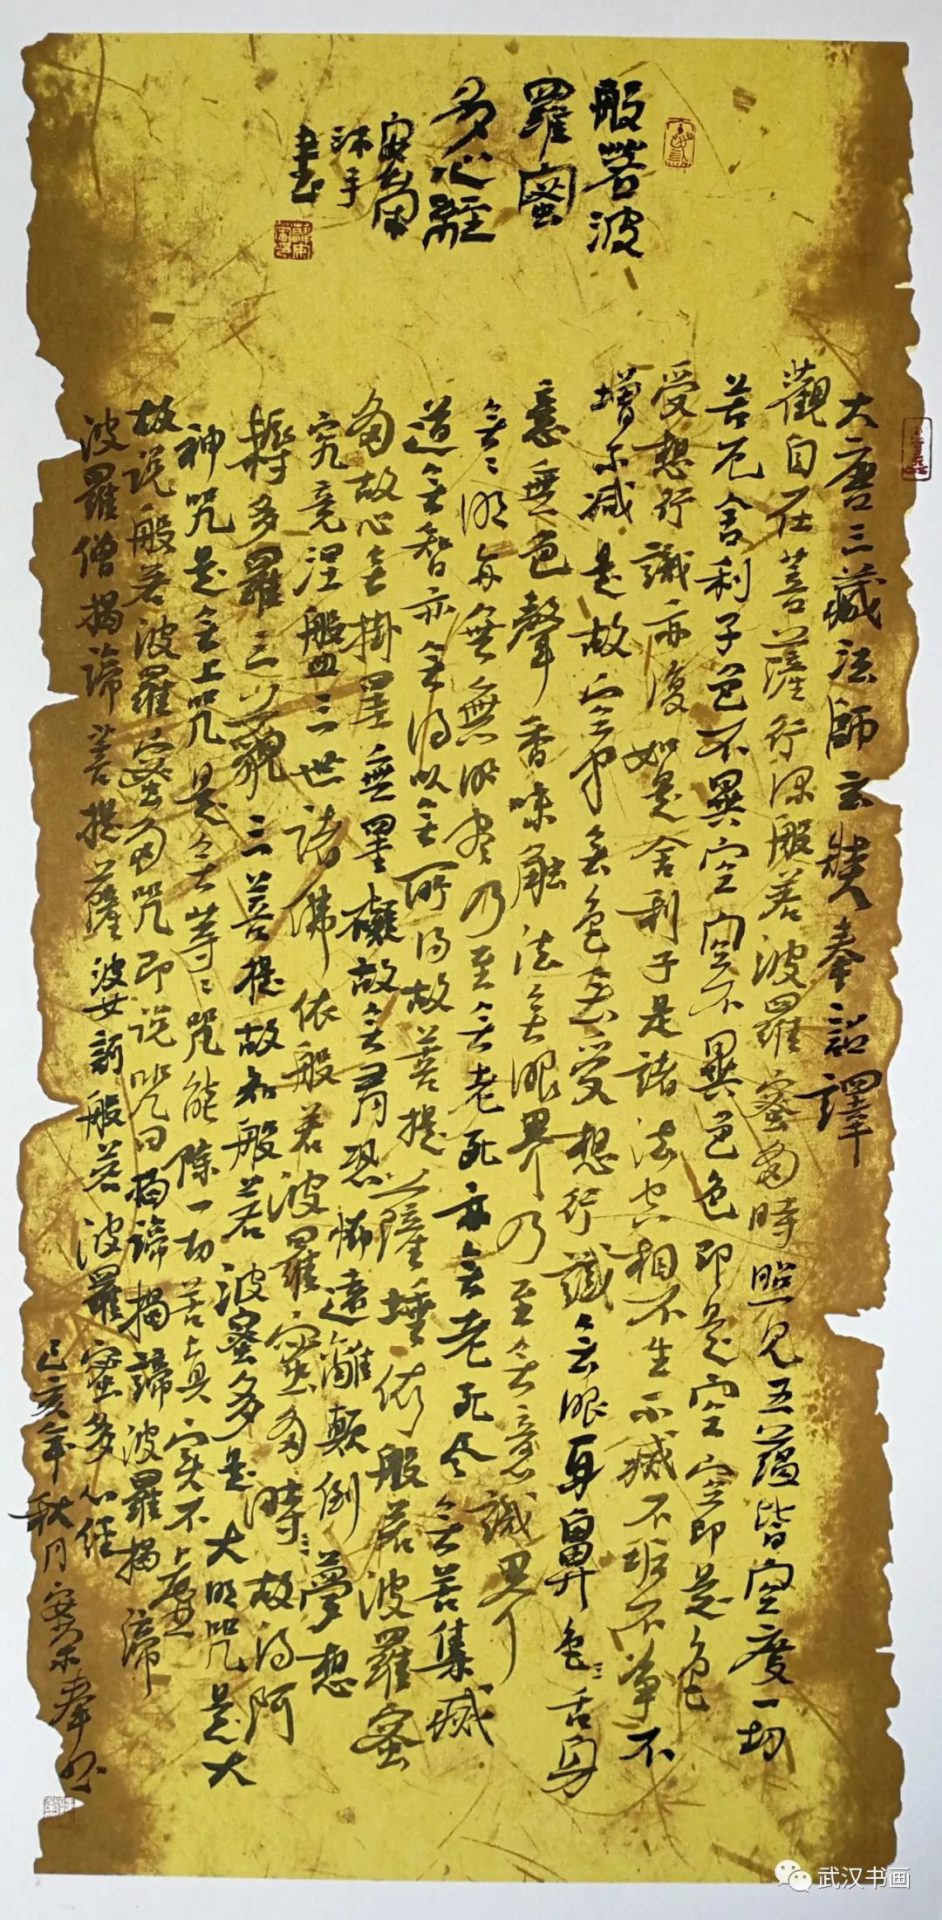 般若波
羅蜜
多心經
沐手
書
大唐三藏法師玄奘奉詔譯
觀自在菩薩行深般若波羅蜜多時照見五蘊皆空度一切
苦厄舍利子色不異空空不異色色即是空空即是色
受想行識亦復如是舍利子是諸法空相不生不滅不垢不淨不
增不減是故空中無色無受想行識無眼耳鼻色舌身
意無色聲香味觸法無眼界乃至無意識界
無無明亦無無明盡乃至無老死亦無老死盡無苦集滅
道無智亦無得以無所得故菩提薩埵依般若波羅蜜
多故心無掛罣無罣礙故無有恐怖遠離顛倒夢想
究竟涅般三世諸佛依般若波羅蜜多時故得阿
耨多羅三藐三菩提故知般若波蜜多是大明咒是大
神咒是無上咒是無等等咒能除一切苦真實不虛
故說般若波羅蜜多咒即說咒曰揭諦揭諦波羅揭諦
波羅僧揭諦菩提薩婆訶般若波羅蜜多心經
己亥年秋月奉書
武汉书画